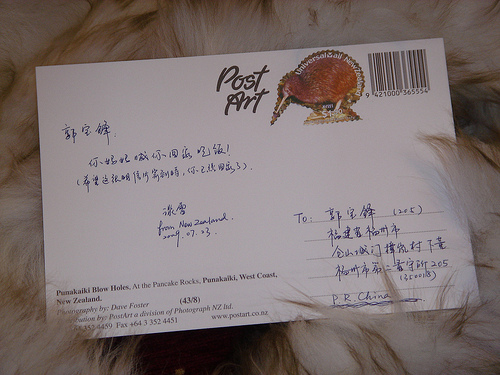 Post
Art
Universal Mail New Zealand
9 421000 365554
郭宝锋,
你妈妈喊你回家吃饭!
(希望这张明信片寄到时,你已经回家了)
from New Zealand.
2009.07.23.
To: 郭宝锋 (205)
福建省福州市
仓山城门
福州市第二看守所205
(350018)
P.R. China
Punakaiki Blow Holes, At the Pancake Rocks, Punakaiki, West Coast,
New Zealand.
Photography by: Dave Foster (43/8)
bution by: PostArt a division of Photograph NZ ltd.
352 4459 Fax +64 3 352 4451 www.postart.co.nz